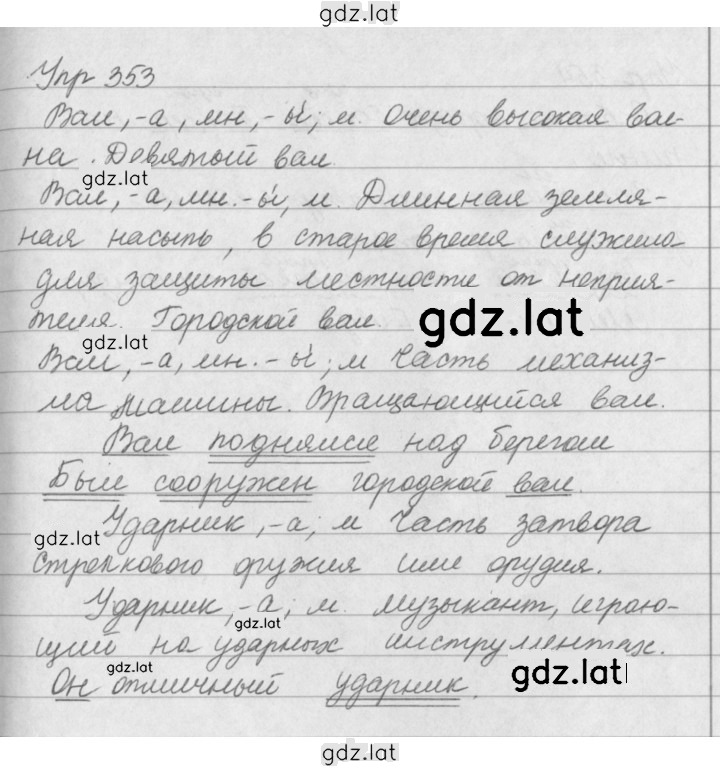 gdz.lat
Упр 353
Вал, -а, мн, -ы́; м. Очень высокая вол-
на. Девятый вал.
gdz.lat
Вал, -а, мн. -ы́, м. Длинная земля-
ная насыпь, в старое время служила
для защиты местности от неприя-
теля. Городской вал.
gdz.lat
Вал, -а, мн. -ы́; м Часть механиз-
ма машины. Вращающийся вал.
Вал поднялся над берегом
Был сооружен городской вал.
Ударник, -а; м Часть затвора
gdz.lat
стрелкового оружия или орудия.
Ударник, -а; м. музыкант, играю-
gdz.lat
щий на ударных инструментах.
gdz.lat
Он отличный ударник.
gdz.lat
gdz.lat